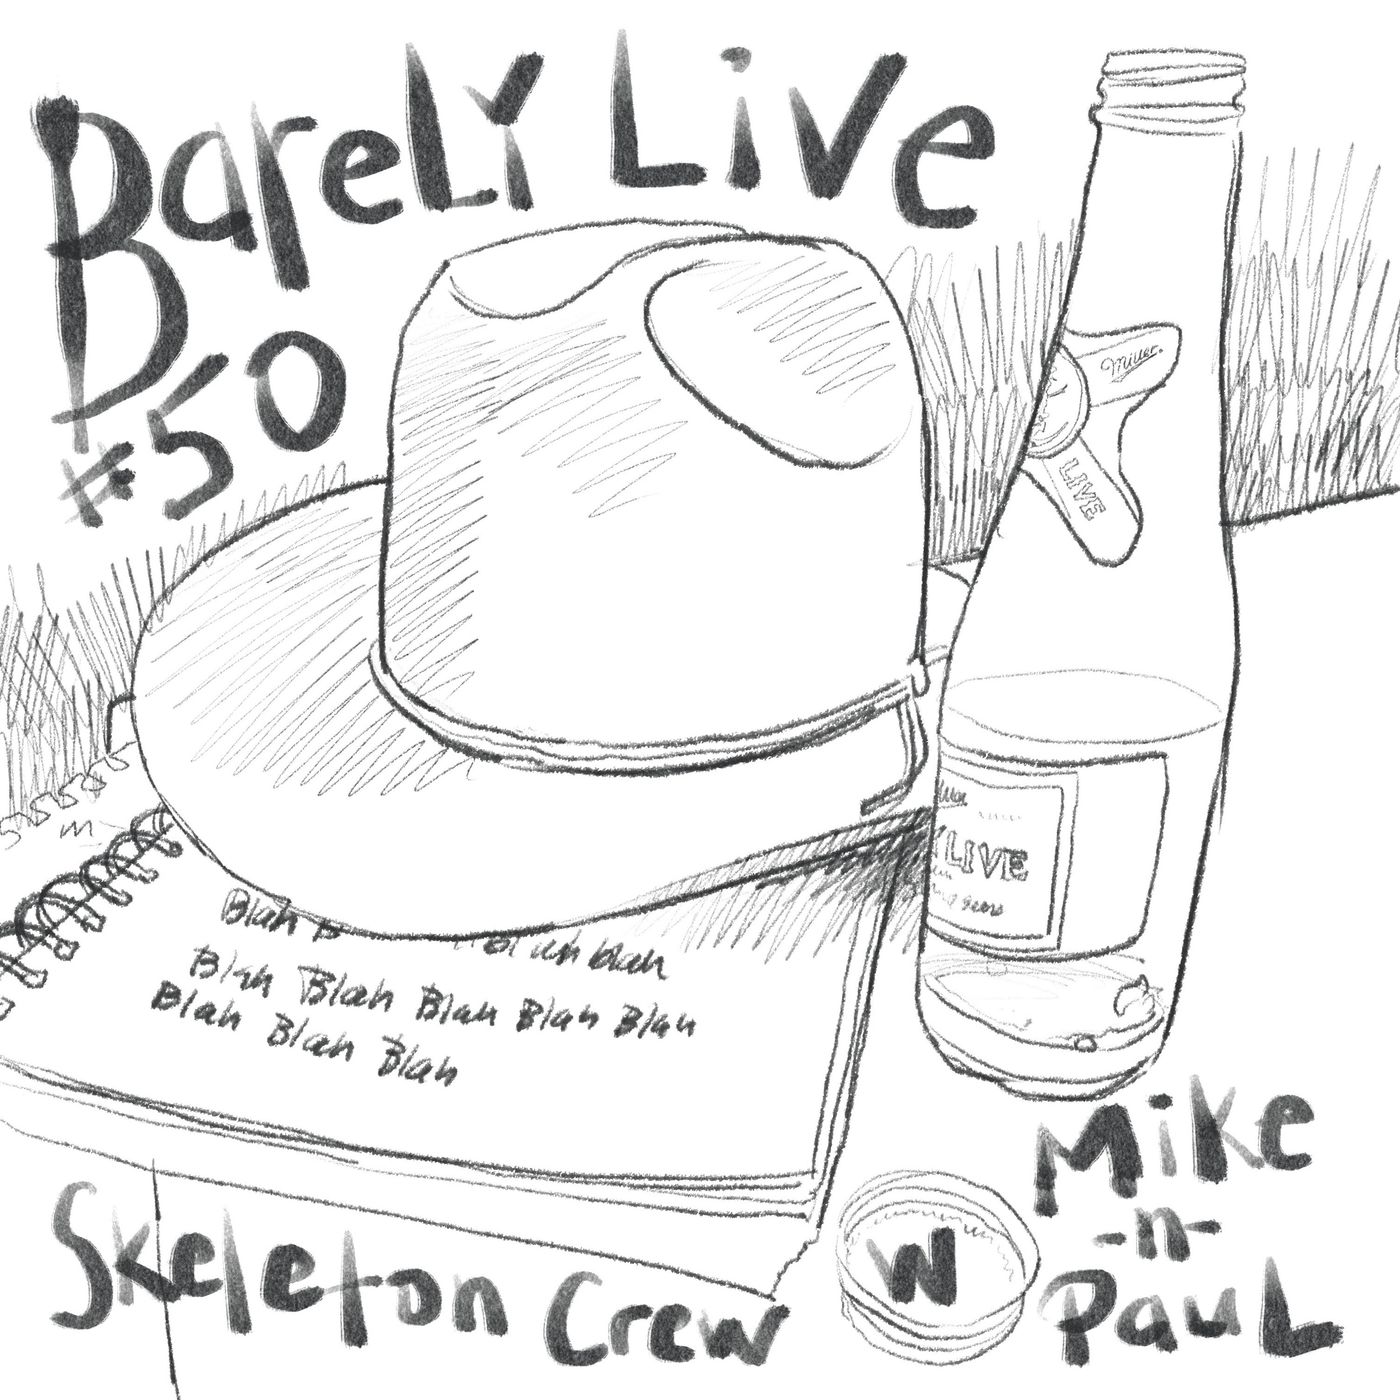 Barely Live
#50
Miller
LIVE
LIVE
Blah B
Blah Blah
Blah Blah Blah Blah Blah
Blah Blah Blah
Skeleton Crew
W
Mike
-n-
Paul